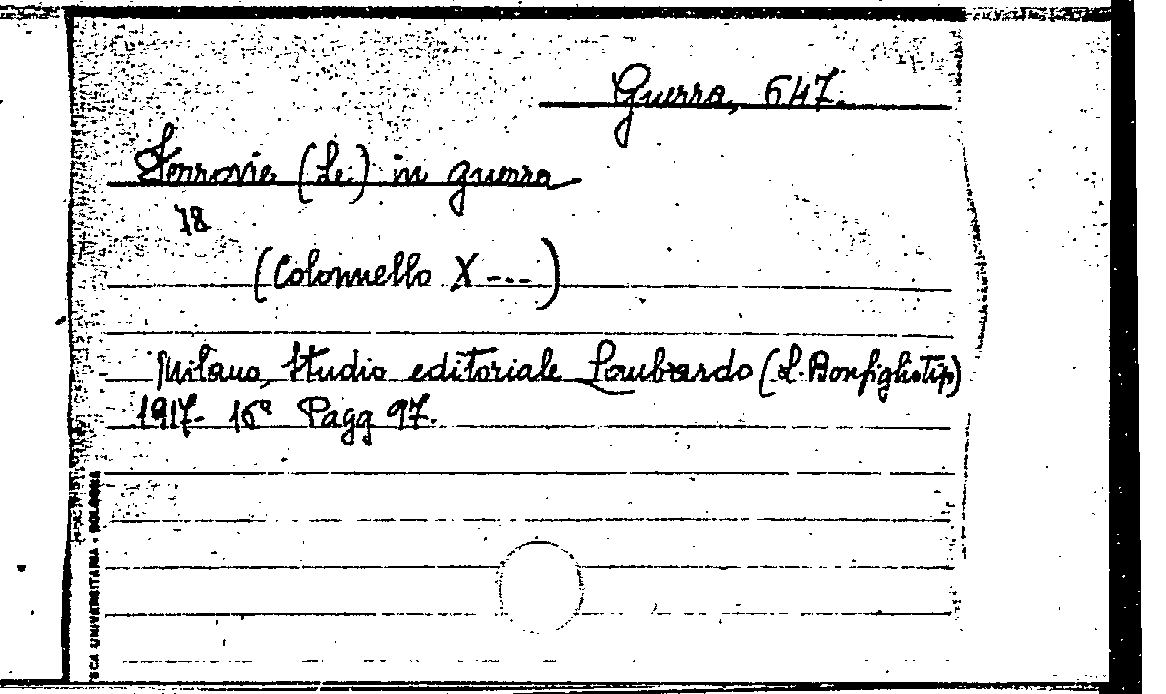 Guerra, 647.
Ferrovie (Le) in guerra
18
(Colonnello X ---)
Milano, Studio editoriale Lombardo (L. Bonfiglio Tip)
1917- 16° Pagg 97.
UNIVERSITARIA - BOLOGNA